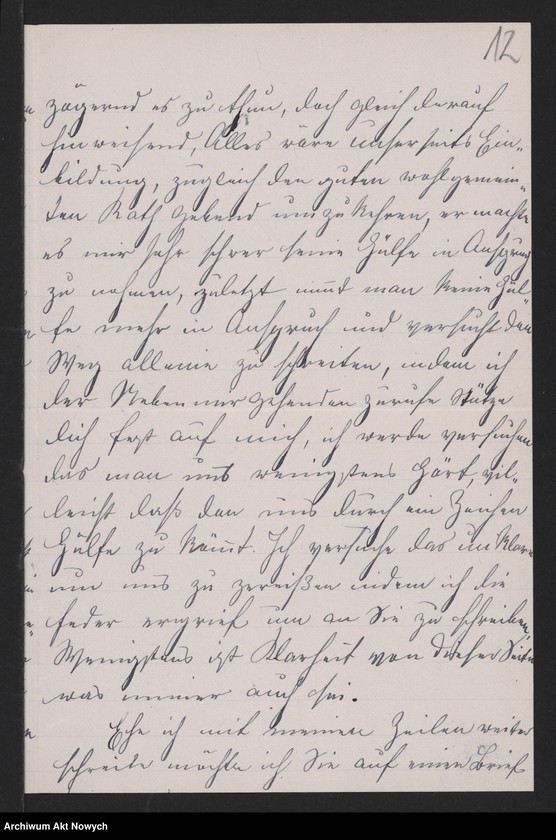 12
zögernd es zu thun, doch gleich darauf
hinweisend, Alles wäre unserseits Ein-
bildung, zugleich den guten wohlgemein-
ten Rath gebend umzukehren, er machte
es mir sehr schwer seine Hülfe in Anspruch
zu nehmen, zuletzt nimt man keine Hül-
fe mehr in Anspruch und versucht den
Weg alleine zu schreiten, indem ich
der Nebenmirgehenden zurufe Stütze
dich fest auf mich, ich werde versuchen
das man uns wenigstens hört, vil-
leicht daß dan uns durch ein Zeichen
Hülfe zu kömt. Ich versuche das unklare
um uns zu zereißen indem ich die
Feder ergrief um an Sie zu schreiben,
Wenigstens ist Klarheit von dieser Seite
was immer auch sei.
Ehe ich mit meinen Zeilen weiter
schreite möchte ich Sie auf einen Brief
Archiwum Akt Nowych